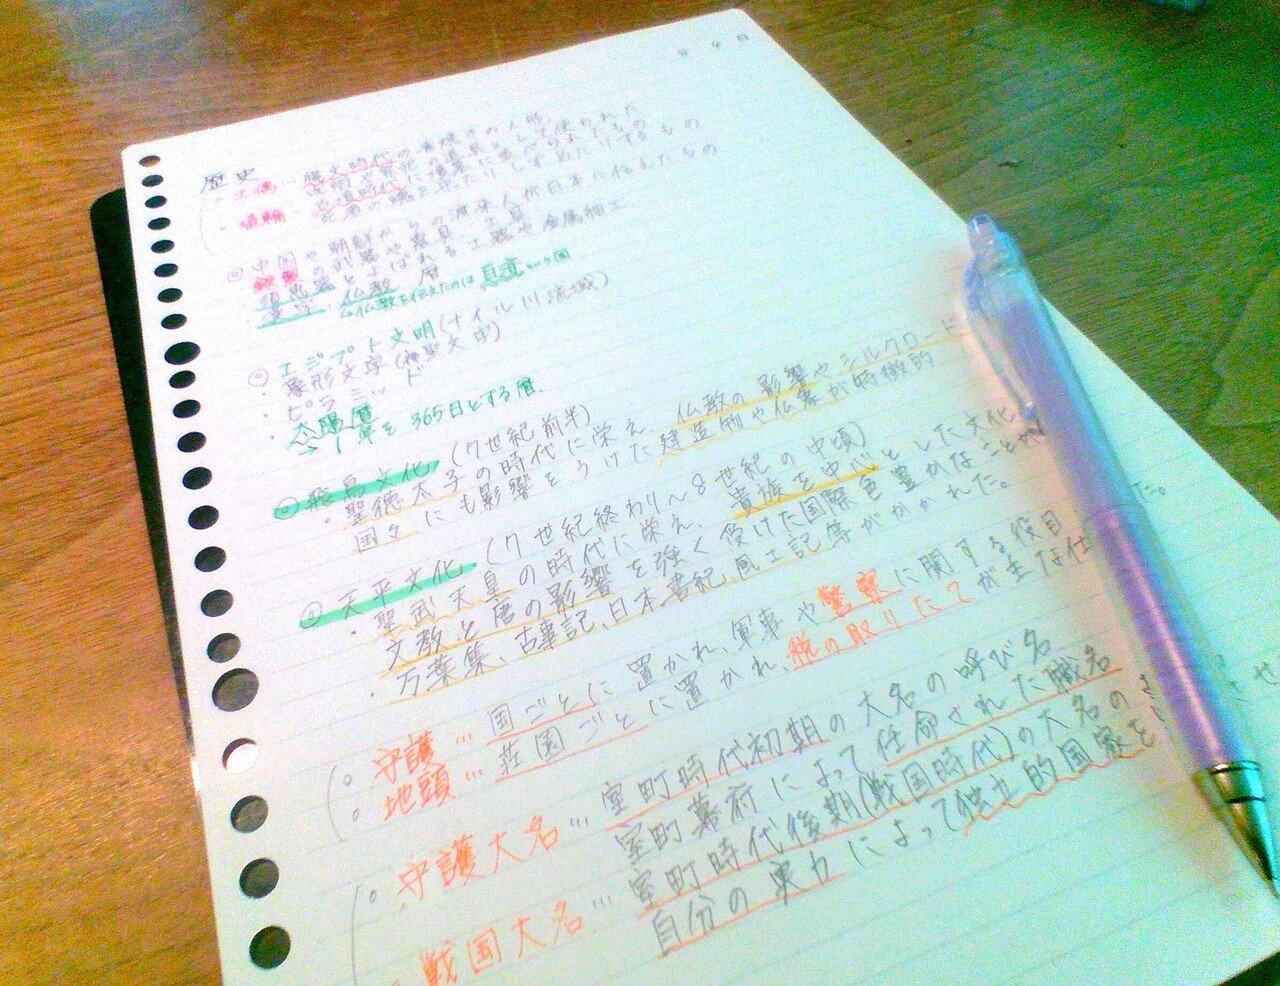 年 月 日
歴史
・土偶…縄文時代の素焼きの人形。
呪術や祭祀の道具として使われた
・埴輪…古墳時代に墳墓に並べられたもの
死者の魂をしずめたりするもの
◎中国や朝鮮からの渡来人が日本に伝えたもの
・鉄製の武器や農具、工具
・須恵器とよばれる土器や金属細工
・漢字、仏教、暦
仏教を伝えたのは百済という国
◎エジプト文明(ナイル川流域)
・象形文字(神聖文字)
・ピラミッド
・太陽暦
1年を365日とする暦。
◎飛鳥文化(7世紀前半)
・聖徳太子の時代に栄え、仏教の影響やシルクロード
国々にも影響をうけた建造物や仏像が特徴的
◎天平文化(7世紀終わり〜8世紀の中頃)
・聖武天皇の時代に栄え、貴族を中心とした文化
文教と唐の影響を強く受けた国際色豊かなことが
・万葉集、古事記、日本書紀、風土記等がかかれた。
た。
。守護…国ごとに置かれ、軍事や警察に関する役目
。地頭…荘園ごとに置かれ、税の取りたてが主な仕
。守護大名…室町時代初期の大名の呼び名
室町幕府によって任命された職名
・戦国大名…室町時代後期(戦国時代)の大名の
自分の実力によって独立的国家を